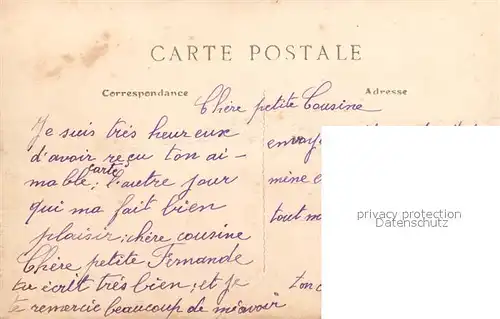 CARTE POSTALE
Correspondance
Adresse
Chère petite Cousine
Je suis très heureux
d'avoir reçu ton ai-
carte
mable, l'autre jour
qui ma fait bien
plaisir; chère cousine
Chère petite Fernande
tu écrit très bien; et je
te remercie beaucoup de m'éavoir
envoy
mine
tout m
ton
privacy protection
Datenschutz